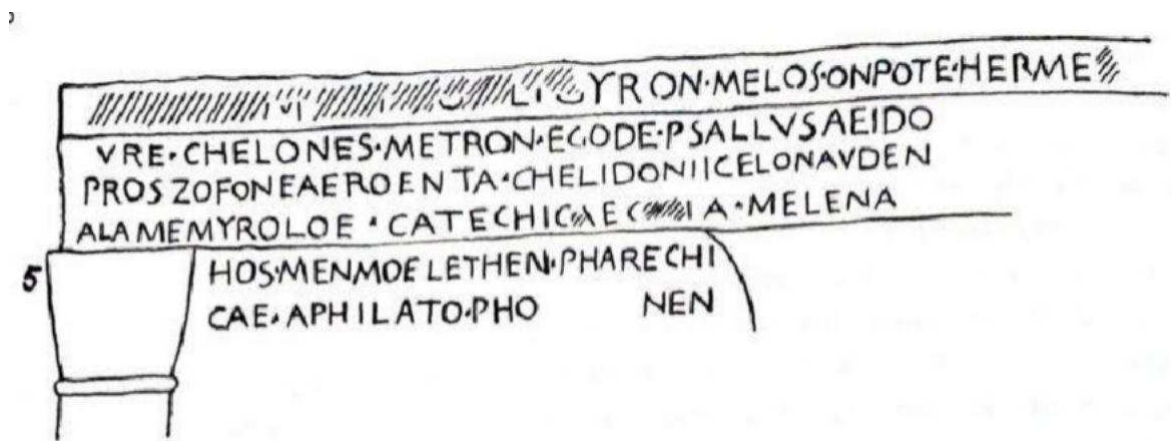 YRON·MELOS·ONPOTE·HERME
VRE·CHELONES·METRON·EGODE·PSALLVSAEIDO
PROSZOFONEAEROENTA·CHELIDONIICELONAVDEN
ALAMEMYROLOE·CATECHI A·MELENA
5 HOS·MENMOELETHEN·PHARECHI
CAE·APHILATO·PHO NEN